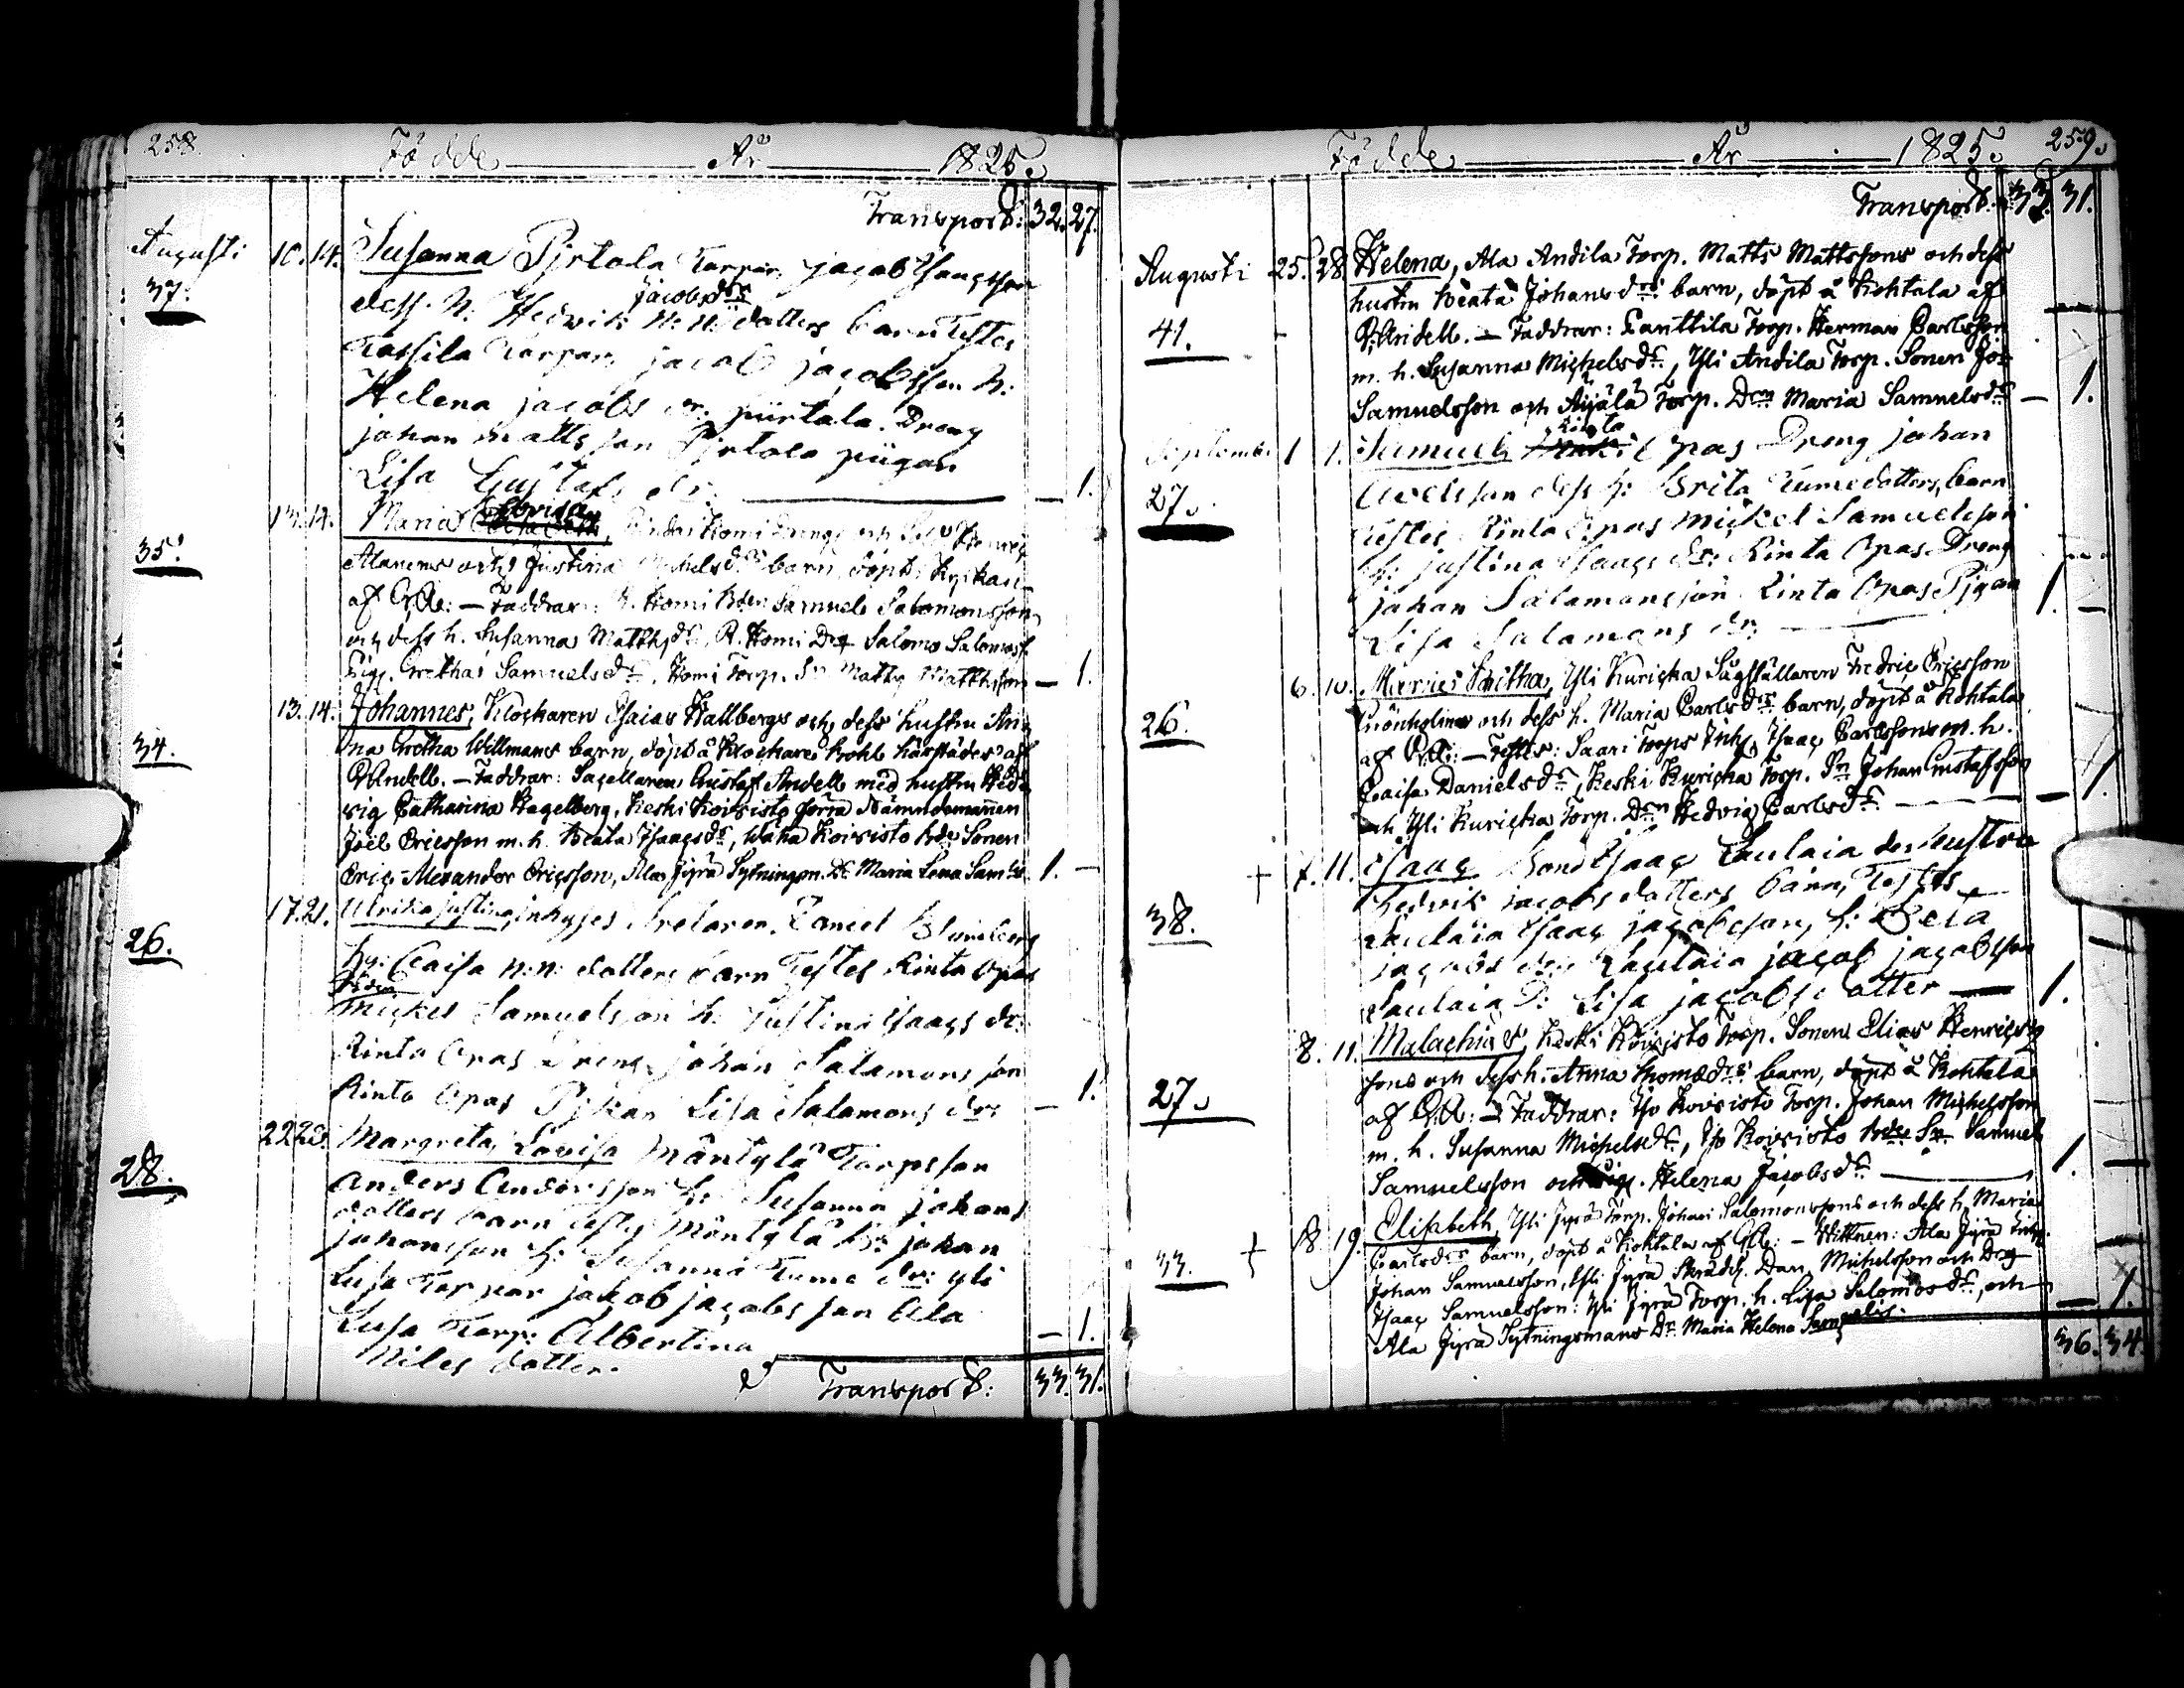 258. Födde År 1825.
Transport: 32. 27.
Augusti 10. 14. Susanna Pjrtola Torpar. jacob Isaacsson
37. dess h. Hedwik N: N: Jacobsdrs dotters barn Testes
Tassila Torpar. jacob jacobsson h:
Helena jacobs dr. piirtala. Dreng
johan mattsson Pjrtola piigan
Lisa Gustafs dr: — 1.
13. 14. Maria Lovisa, Homi Drengs och
35. Alanens och Justina Michelsdrs barn, döpt i Kyrkan
af G. A: — Faddrar: R. Homi Bden Samuel Salomonsson
och dess h. Susanna Matthsdr, R. Homi Drg Salomo Salomoss.
Pig. Gretha Samuelsdr, Homi Torp. Sn Matts Matthsson — 1.
13. 14. Johannes, Klockaren Esaias Hallbergs och dess hustru An-
34. na Gretha Willmans barn, döpt å Klockare Bohl härstädes af
G. Andell. — Faddrar: Sacellaren Gustaf Andell med hustru Hed-
vig Catharina Hagelberg, Keski Koivisto förra Nämndemannen
Joel Ericsson m. h. Beata Isaacsdr, Waha Koivisto Bde Sonen
Eric Alexander Ericsson, Ala Jyrä Sytningm. Dr Maria Lena Samls. 1. —
17. 21. Ulrika justina, inhyses Daniel
26. hu: Caisa N: N: dotters barn Testes Rinta Opas
Mickel Samuelsson h: justina Isaacs dr:
Rinta Opas Dreng. johan Salamonsson
Rinta Opas Pjkan Lisa Salamons dr: — 1.
22. 28. Margreta Lovisa Mäntylä Torpsson
28. Anders Andersson h: Susanna johans
dotters barn Testes Mäntylä johan
johansson h: Susanna Tume dr: yli
Lusa Torpar jakob jacobsson Ala
Lusa Torp: Albertina — 1.
Niles dotter.
Transport: 33. 31.
Födde År 1825. 259.
Transport: 33. 31.
Augusti 25. 28. Helena, Ala Andila Torp. Matts Mattssons och dess
hustru Beata Johansdrs barn, döpt å Kohtala af
41. G. Andell. — Faddrar: Panttila Torp. Herman Carlsson
m. h. Susanna Michelsdr, Yli Andila Torp. Sonen Joh.
Samuelsson och Äijälä Torp. Drn Maria Samuelsdr — 1.
September 1. 1. Samuel Rinta Opas Dreng johan
27. Axelsson dess h: Brita Tumedotters, barn
Testes Rinta Opas Mickel Samuelsson
h: justina Isaacs dr: Rinta Opas Dreng
johan Salamonsson Rinta Opas Pigan 1. —
Lisa Salamons dr: —
6. 10. Maria Britha, Yli Kuricka Sågställaren Fredric Ericsson
26. Grönholms och dess h. Maria Carlsdrs barn, döpt å Kohtala
af G. A: — Testes: Saari Torps Inh. Isaac Carlssons m. h.
Caisa Danielsdr, Keski Kuricka Torp. Sn Johan Gustafsson
och Yli Kuricka Torp. Drn Hedvig Carlsdr — 1.
† 7. 11. Isaac Bond Isaac Laulaia des hustru
38. Hedwik jacobs dotters barn, Testes
Laulaia Isaac jacobsson, h: Beta
jacobs dr: Laulaia jacob jacobsson
Laulaia P: Lisa jacobs dotter — 1.
8. 11. Malachias, Keski Koivisto Torp. Sonen Elias Henrics-
sons och dess h. Anna Thomædrs barn, döpt å Kohtala
27. af G. A: — Faddrar: Iso Koivisto Torp. Johan Michelsson
m. h. Susanna Michelsdr, Iso Koivisto Bde Sn Samuel
Samuelsson och Pig. Helena Jacobsdr — 1. —
† 18. 19. Elisabeth, Yli Jyrä Torp. Johan Salomonssons och dess h. Maria
33. Carlsdrs barn, döpt å Kohtala af G. A: — Wittnen: Ala Jyrä
Johan Samuelsson, Yli Jyrä Skrädd. Dan. Michelsson och Drg
Isaac Samuelsson: Yli Jyrä Torp. h. Lisa Salomosdr, och — 1.
Ala Jyrä Sytningsmans Dr. Maria Helena
36. 34.